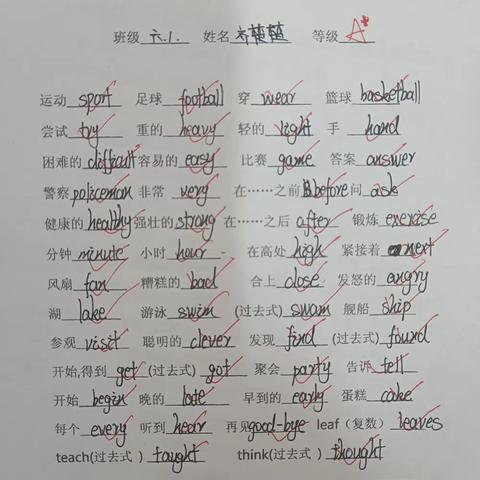 班级 六.1. 姓名 齐蓓蓓 等级 A+
运动 sport 足球 football 穿 wear 篮球 basketball
尝试 try 重的 heavy 轻的 light 手 hand
困难的 difficult 容易的 easy 比赛 game 答案 answer
警察 policeman 非常 very 在……之前 before 问 ask
健康的 healthy 强壮的 strong 在……之后 after 锻炼 exercise
分钟 minute 小时 hour 在高处 high 紧接着 next
风扇 fan 糟糕的 bad 合上 close 发怒的 angry
湖 lake 游泳 swim (过去式) swam 舰船 ship
参观 visit 聪明的 clever 发现 find (过去式) found
开始,得到 get (过去式) got 聚会 party 告诉 tell
开始 begin 晚的 late 早到的 early 蛋糕 cake
每个 every 听到 hear 再见 good-bye leaf (复数) leaves
teach(过去式) taught think(过去式) thought